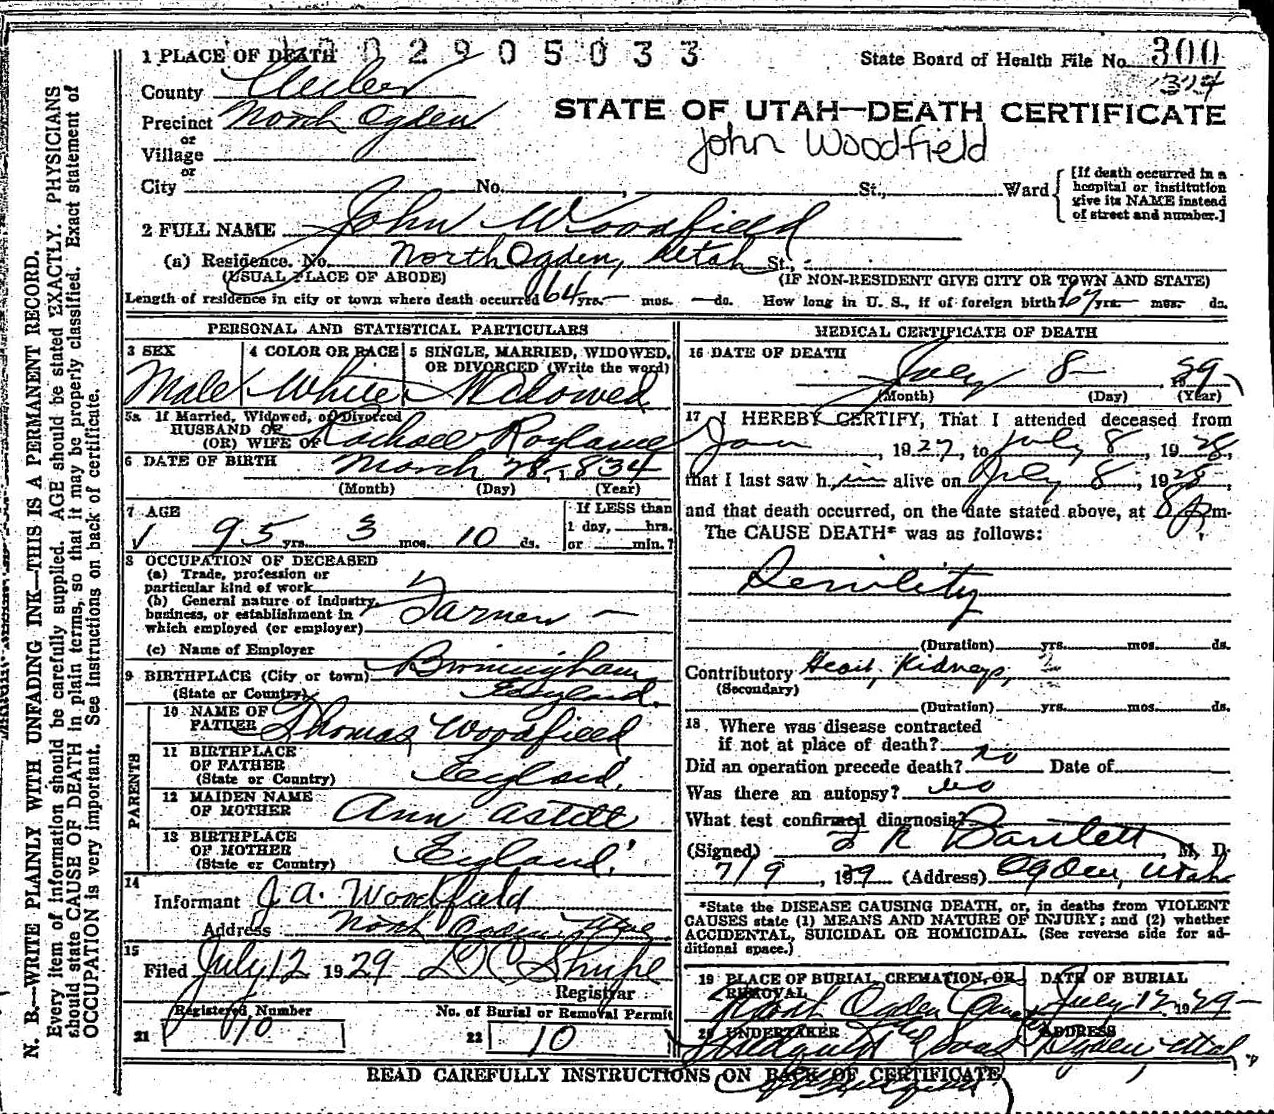 1 PLACE OF DEATH
02905033
State Board of Health File No. 300
County Weber
1314
Precinct North Ogden
STATE OF UTAH—DEATH CERTIFICATE
or
Village
John Woodfield
or
City No. , St., Ward
[If death occurred in a hospital or institution give its NAME instead of street and number.]
2 FULL NAME John Woodfield
(a) Residence. No. North Ogden, Utah St.,
(USUAL PLACE OF ABODE) (IF NON-RESIDENT GIVE CITY OR TOWN AND STATE)
Length of residence in city or town where death occurred 64 yrs. — mos. — ds. How long in U. S., if of foreign birth? 64 yrs. — mos. ds.
PERSONAL AND STATISTICAL PARTICULARS
3 SEX 4 COLOR OR RACE 5 SINGLE, MARRIED, WIDOWED,
OR DIVORCED (Write the word)
Male White Widowed
5a If Married, Widowed, or Divorced
HUSBAND OF
(OR) WIFE OF Rachael
6 DATE OF BIRTH March 28-1834
(Month) (Day) (Year)
7 AGE If LESS than
1 day, hrs.
95 yrs. 3 mos. 10 ds. or min.?
8 OCCUPATION OF DECEASED
(a) Trade, profession or
particular kind of work
(b) General nature of industry,
business, or establishment in
which employed (or employer) Farmer —
(c) Name of Employer
9 BIRTHPLACE (City or town) Birmingham
(State or Country) England.
PARENTS
10 NAME OF
FATHER Thomas Woodfield
11 BIRTHPLACE
OF FATHER
(State or Country) England.
12 MAIDEN NAME
OF MOTHER Ann Astell
13 BIRTHPLACE
OF MOTHER
(State or Country) England.
14
Informant J. A. Woodfield
Address North Ogden
15
Filed July 12 1929 Shupe
Registrar
Registered Number No. of Burial or Removal Permit
21 10 22 10
MEDICAL CERTIFICATE OF DEATH
16 DATE OF DEATH
July 8 — 1929
(Month) (Day) (Year)
17 I HEREBY CERTIFY, That I attended deceased from
Jan , 1927, to July 8, 1928,
that I last saw him alive on July 8, 1928,
and that death occurred, on the date stated above, at 8 p m.
The CAUSE DEATH* was as follows:
Senility
(Duration) yrs. mos. ds.
Contributory Heart, Kidneys,
(Secondary)
(Duration) yrs. mos. ds.
18. Where was disease contracted
if not at place of death?
Did an operation precede death? no Date of
Was there an autopsy? no
What test confirmed diagnosis?
(Signed) R Bartlett M. D.
7/9 , 1929 (Address) Ogden, Utah
*State the DISEASE CAUSING DEATH, or, in deaths from VIOLENT
CAUSES state (1) MEANS AND NATURE OF INJURY; and (2) whether
ACCIDENTAL, SUICIDAL OR HOMICIDAL. (See reverse side for ad-
ditional space.)
19 PLACE OF BURIAL, CREMATION, OR
REMOVAL
DATE OF BURIAL
North Ogden July 12 1929
20 UNDERTAKER ADDRESS
Ogden, Utah
READ CAREFULLY INSTRUCTIONS ON BACK OF CERTIFICATE
N. B.—WRITE PLAINLY WITH UNFADING INK—THIS IS A PERMANENT RECORD.
Every item of information should be carefully supplied. AGE should be stated EXACTLY. PHYSICIANS
should state CAUSE OF DEATH in plain terms, so that it may be properly classified. Exact statement of
OCCUPATION is very important. See instructions on back of certificate.